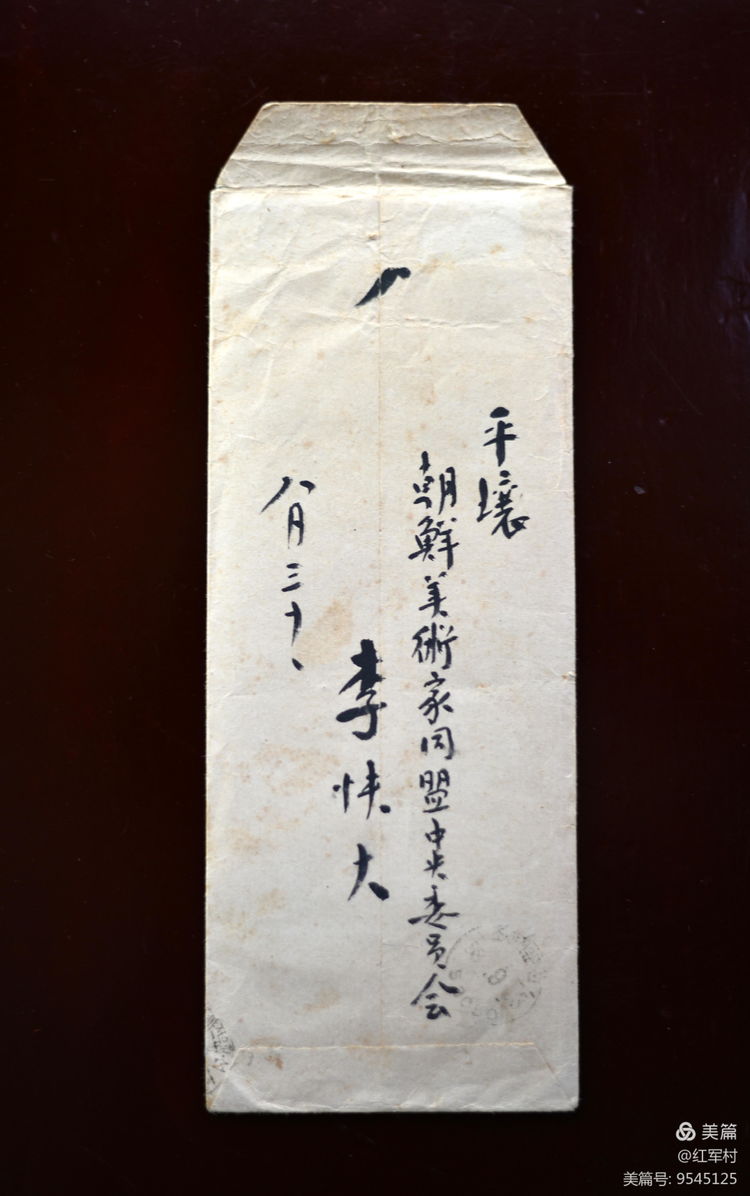 平壤
朝鮮美術家同盟中央委員会
李快大
八月三十、
美篇
@红军村
美篇号: 9545125